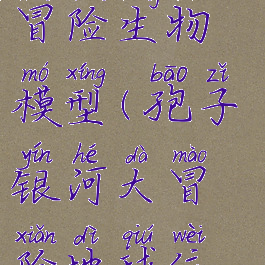 冒险生物
mó xíng bāo zǐ
模型(孢子
yín hé dà mào
银河大冒
xiǎn dì qiú wèi
险地球位